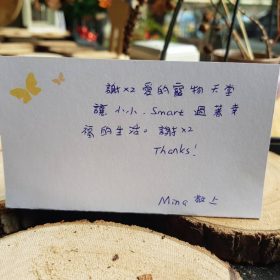 謝x2 愛的寵物天堂
讓小小.Smart 過著幸
福的生活。謝x2
Thanks!
Mina 敬上